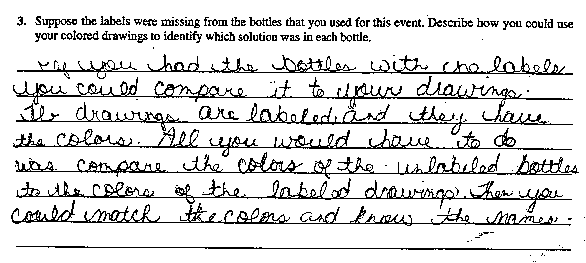 3. Suppose the labels were missing from the bottles that you used for this event. Describe how you could use
your colored drawings to identify which solution was in each bottle.
If you had the bottles with no labels
you could compare it to your drawings.
The drawings are labeled, and they have
the colors. All you would have to do
was compare the colors of the unlabeled bottles
to the colors of the labeled drawings. Then you
could match the colors and know the names.